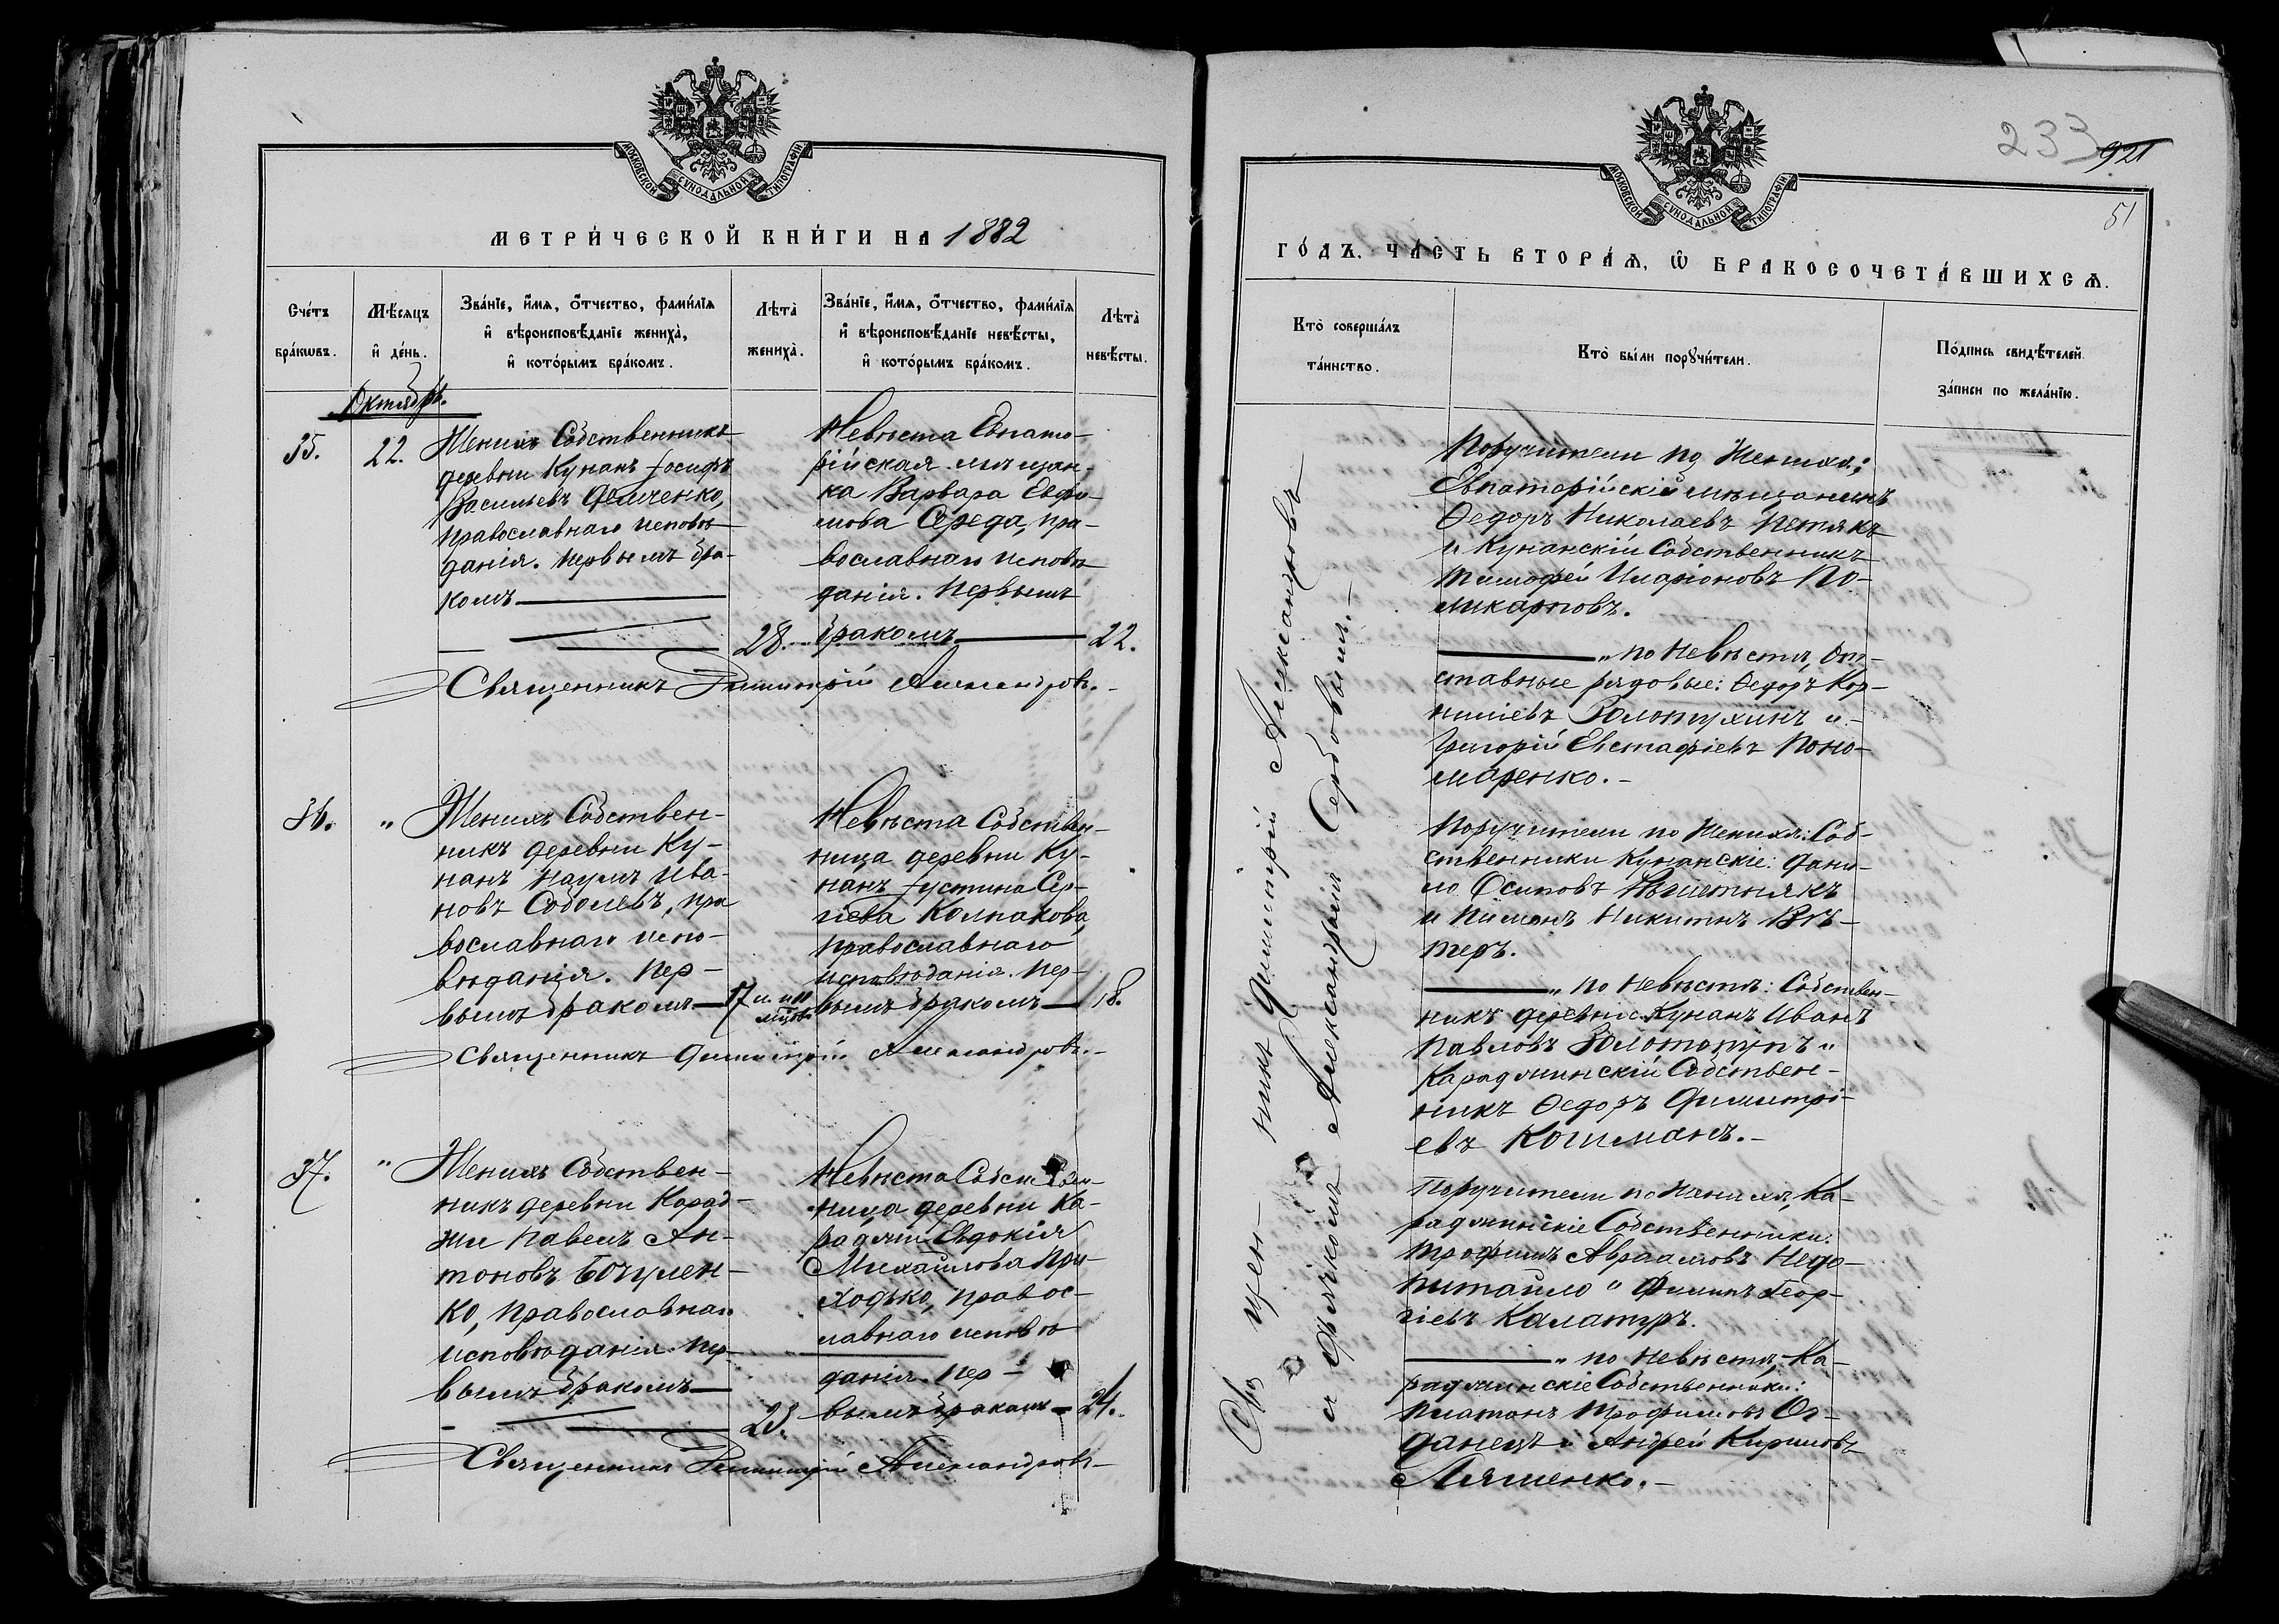 МОСКОВСКОЙ СѴНОДАЛЬНОЙ ТИПОГРАФІИ
МЕТРИ́ЧЕСКОЙ КНИ́ГИ НА 1882
Сче́тъ бра́кωвъ.
Мѣ́сяцъ и҆ де́нь.
Зва́нїе, и҆́мя, ѻ҆́тчество, фами́лїя
и҆ вѣроисповѣ́данїе жениха̀,
и҆ кото́рымъ бра́комъ.
Лѣта̀ жениха̀.
Зва́нїе, и҆́мя, ѻ҆́тчество, фами́лїя
и҆ вѣроисповѣ́данїе невѣ́сты,
и҆ кото́рымъ бра́комъ.
Лѣта̀ невѣ́сты.
Октябрь.
35.
22.
Женихъ Собственникъ
деревни Кунанъ Іосифъ
Васильевъ Демченко,
православнаго исповѣ
данія. Первымъ бра-
комъ
28.
Невѣста Евпато-
рійская мѣщан-
ка Варвара Евфи-
мова Середа, пра-
вославнаго исповѣ
данія. Первымъ
бракомъ
22.
Священникъ Димитрій Александровъ.
36.
"
Женихъ Собствен-
никъ деревни Ку-
нанъ Наумъ Ива-
новъ Соболевъ, пра
вославнаго испо-
вѣданія. Пер-
вымъ бракомъ
17 и 11
мцовъ
Невѣста Собствен-
ница деревни Ку-
нанъ Іустина Сер-
гіева Колпакова,
православнаго
исповѣданія. Пер-
вымъ бракомъ
18.
Священникъ Димитрій Александровъ.
37.
"
Женихъ Собствен-
никъ деревни Карад-
жи Павелъ Ан-
тоновъ Бочулен-
ко, православнаго
исповѣданія. Пер-
вымъ бракомъ
23.
Невѣста Собствен-
ница деревни Ка-
раджи Евдокія
Михайлова При-
ходько, правос-
лавнаго исповѣ
данія. Пер-
вымъ бракомъ
24.
Священникъ Димитрій Александровъ
233
921
51
МОСКОВСКОЙ СѴНОДАЛЬНОЙ ТИПОГРАФІИ
ГО́ДЪ. ЧА́СТЬ ВТОРА́Ѧ, Ѽ БРАКОСОЧЕТА́ВШИХСѦ.
Кто̀ соверша́лъ
та́инство.
Кто̀ бы́ли порꙋчи́тели.
По́дпись свидѣ́телей
за́писи по жела́нїю.
Священникъ Димитрій Александровъ
съ дьячкомъ Александромъ Сербовымъ.
Поручители по Женихѣ:
Евпаторійскій мѣщанинъ
Ѳедоръ Николаевъ Петякъ
и Кунанскій Собственникъ
Тимофей Иларіоновъ По-
ликарповъ.
" по Невѣстѣ, От-
ставные рядовые: Ѳедоръ Кор-
ниліевъ Золотухинъ и
Григорій Евстафіевъ Поно-
маренко.
Поручители по Женихѣ: Соб-
ственники Кунанскіе: Дани-
ло Осиповъ Рѣшетнякъ
и Пименъ Никитинъ Вѣ-
теръ.
" по Невѣстѣ: Собствен-
никъ деревни Кунанъ Иванъ
Павловъ Золотопупъ и
Караджинскій Собствен-
никъ Ѳедоръ Димитрі-
евъ Кошманъ.
Поручители по Женихѣ, Ка-
раджинскіе Собственники:
Трофимъ Авраамовъ Недо-
питайло и Филипъ Геор-
гіевъ Каламуръ.
" по Невѣстѣ, Ка-
раджинскіе Собственники:
Платонъ Трофимовъ Ог-
данецъ и Андрей Кириловъ
Ляшенко.